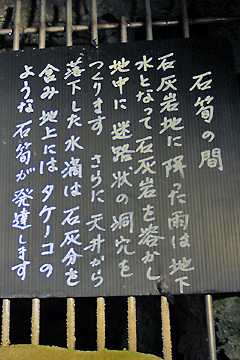 石筍の間
石灰岩地に降った雨は地下
水となって石灰岩を溶かし
地中に迷路状の洞穴を
つくります さらに天井から
落下した水滴は石灰分を
含み地上にはタケノコの
ような石筍が発達します